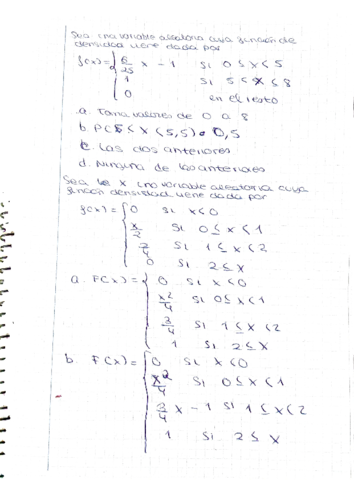 Sea una variable aleatoria cuya función de
densidad viene dada por
f(x)= { 6/25 x - 1 si 0 ≤ x < 5
1 si 5 < x ≤ 8
0 en el resto
a. Toma valores de 0 a 8
b P(5 < x < 5,5) = 0,5
c. Las dos anteriores
d. Ninguna de las anteriores
Sea X una variable aleatoria cuya
función densidad viene dada por
f(x)= { 0 si x<0
x/2 si 0 ≤ x < 1
3/4 si 1 ≤ x < 2
0 si 2 ≤ x
a. F(x)= { 0 si x < 0
x2/4 si 0 ≤ x < 1
3/4 si 1 ≤ x < 2
1 si 2 ≤ x
b. F(x)= { 0 si x < 0
x2/4 si 0 ≤ x < 1
3/4 x - 1 si 1 ≤ x < 2
1 si 2 ≤ x